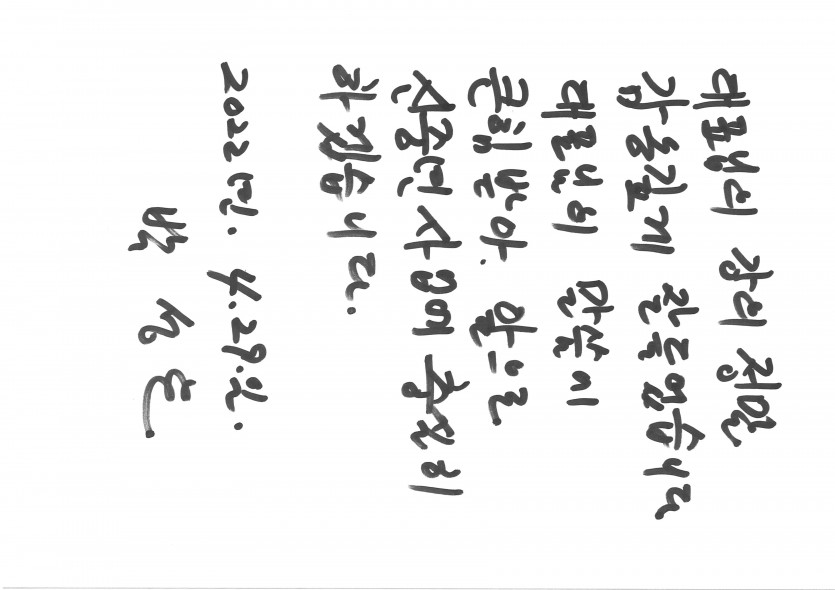 대표님의 강의 정말
감동깊게 잘들었습니다
대표님의 말씀에
큰힘받아. 앞으로
신중년사업에 충실히
하겠습니다.
2022년. 4. 29.일.